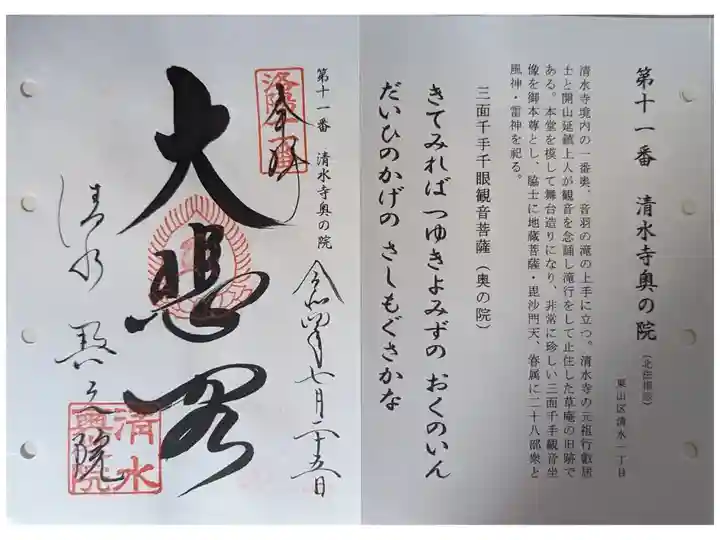 第十一番 清水寺奥の院 (北法相宗)
東山区清水一丁目
清水寺境内の一番奥、音羽の滝の上手に立つ。清水寺の元祖行叡居
士と開山延鎮上人が観音を念誦し滝行をして止住した草庵の旧跡で
ある。本堂を模して舞台造りになり、非常に珍しい三面千手観音坐
像を御本尊とし、脇士に地蔵菩薩・毘沙門天、眷属に二十八部衆と
風神・雷神を祀る。
三面千手千眼観音菩薩(奥の院)
きてみれば つゆきよみずの おくのいん
だいひのかげの さしもぐさかな
第十一番 清水寺奥の院
奉拝
令和四年七月二十五日
大悲閣
清水 奥之院
清水
奥院